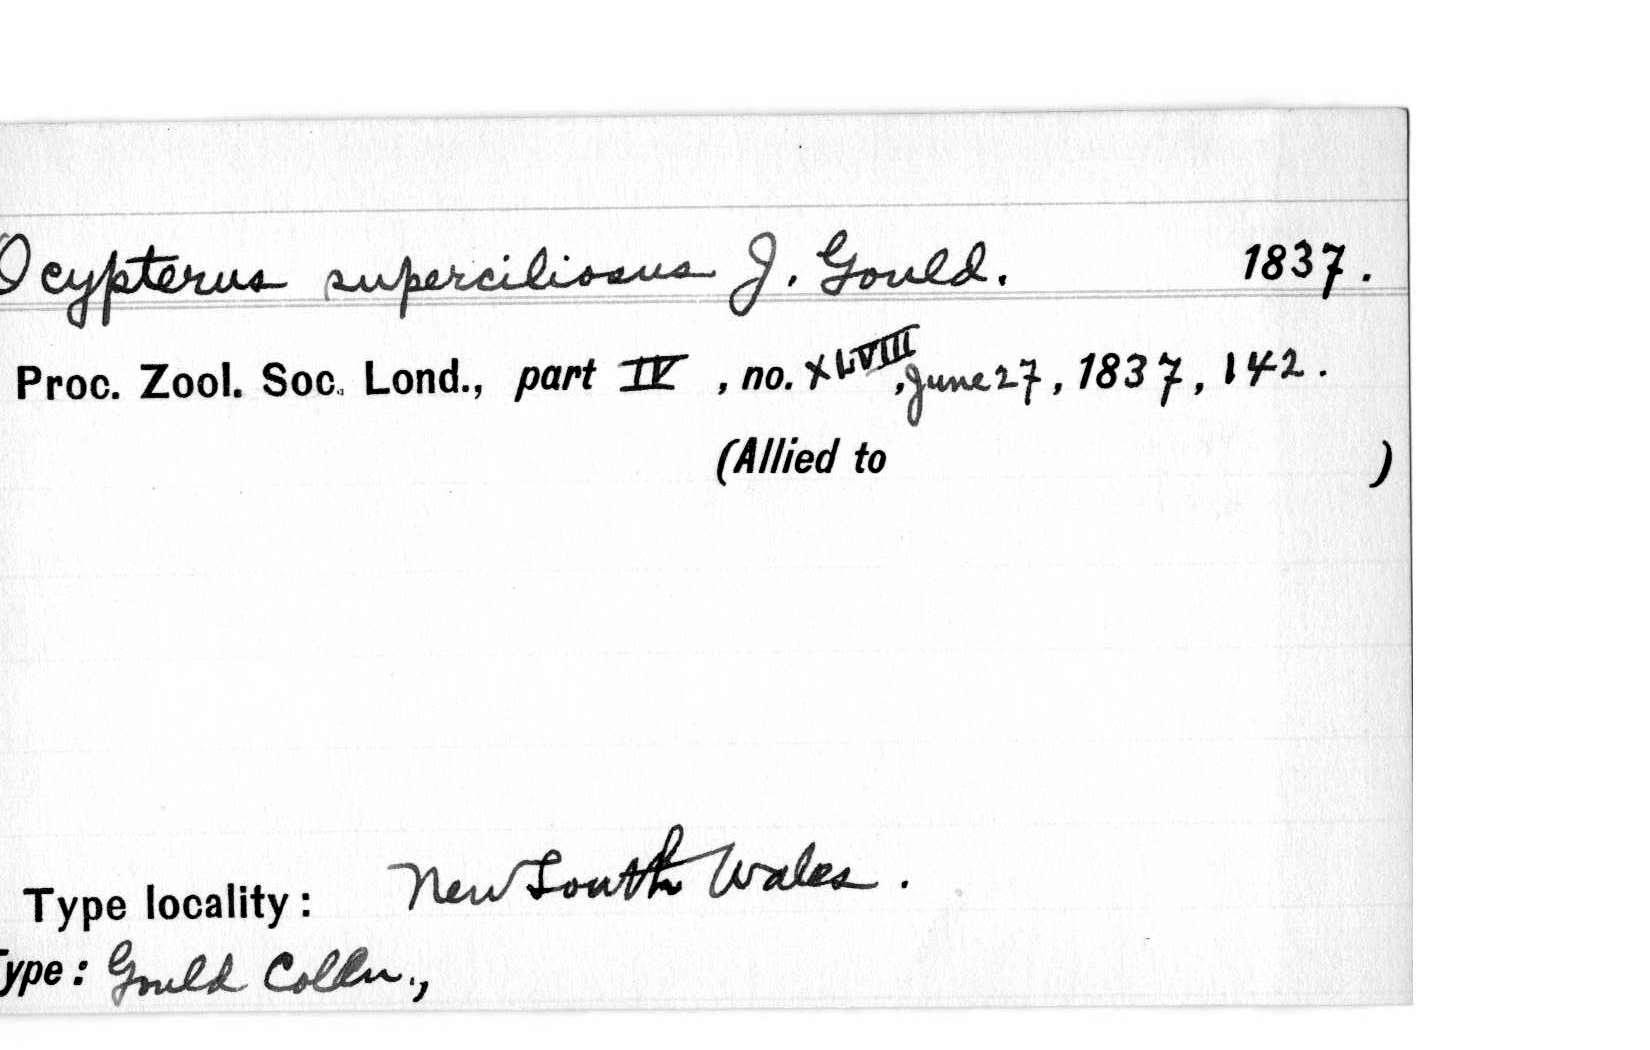 Ocypterus superciliosus J. Gould. 1837.
Proc. Zool. Soc. Lond., part IV, no. XLVIII, June 27, 1837, 142.
(Allied to )
Type locality: New South Wales.
Type: Gould Colln.,